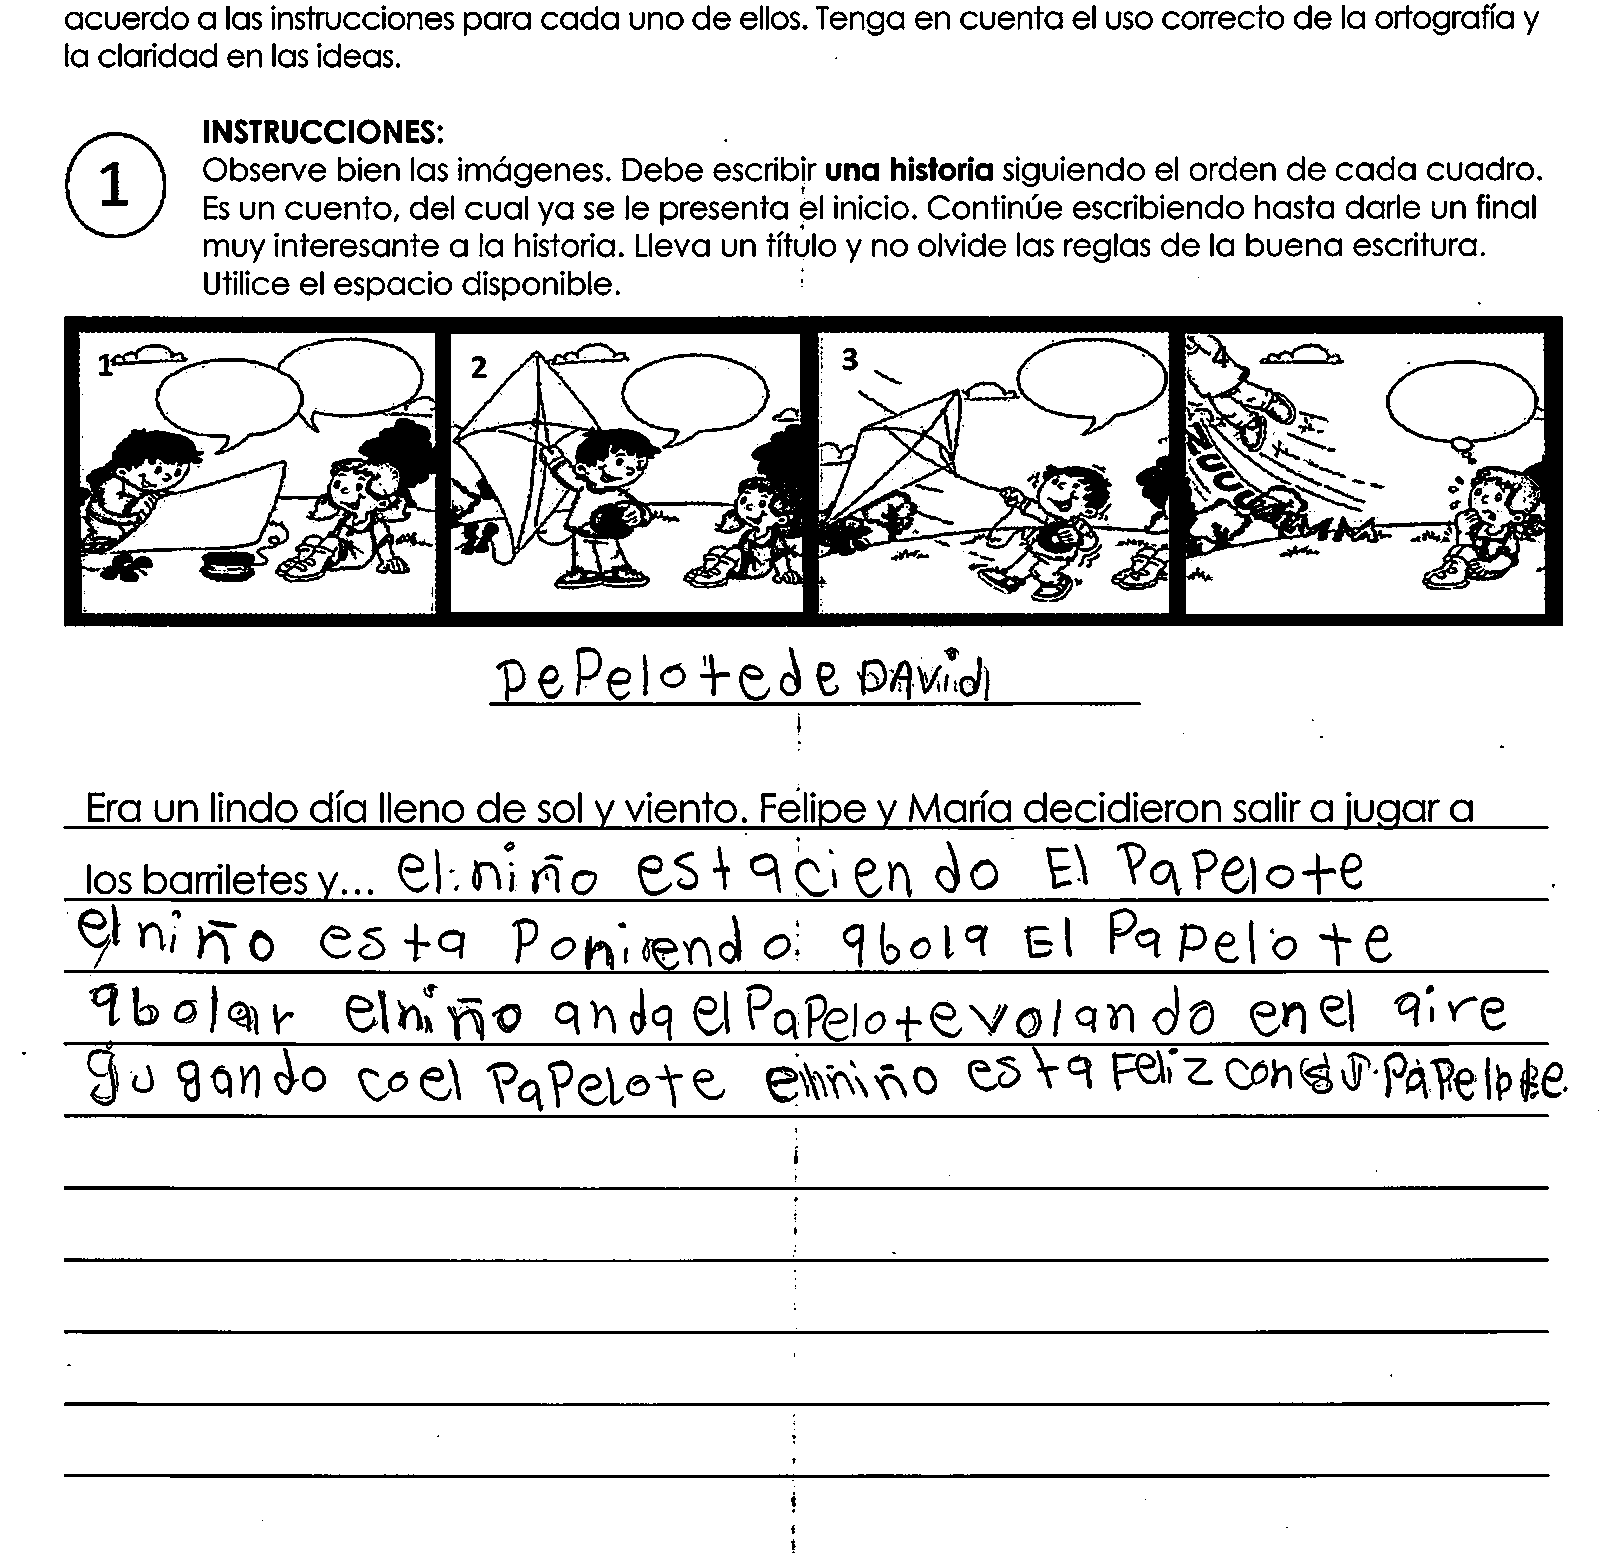 acuerdo a las instrucciones para cada uno de ellos. Tenga en cuenta el uso correcto de la ortografía y
la claridad en las ideas.
1
INSTRUCCIONES:
Observe bien las imágenes. Debe escribir una historia siguiendo el orden de cada cuadro.
Es un cuento, del cual ya se le presenta el inicio. Continúe escribiendo hasta darle un final
muy interesante a la historia. Lleva un título y no olvide las reglas de la buena escritura.
Utilice el espacio disponible.
1 2 3 4
ZUUUUMMM
pePelote de DAvid
Era un lindo día lleno de sol y viento. Felipe y María decidieron salir a jugar a
los barriletes y... el niño estaciendo El PaPelote
el niño esta Poniendo abola El PaPelote
abolar el niño anda el PaPelote volando en el aire
gugando coel PaPelote el niño esta Feliz con su PaPelote.